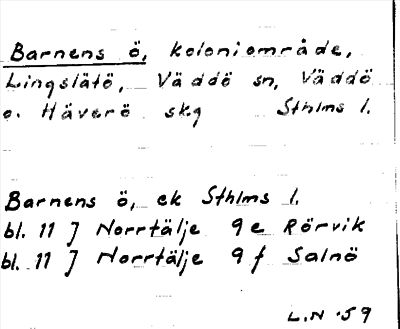 Barnens ö, koloniområde,
Lingslätö, Väddö sn, Väddö
o. Häverö skg Sthlms l.
Barnens ö, ek Sthlms l.
bl. 11 J Norrtälje 9e Rörvik
bl. 11 J Norrtälje 9f Salnö
L.N -59